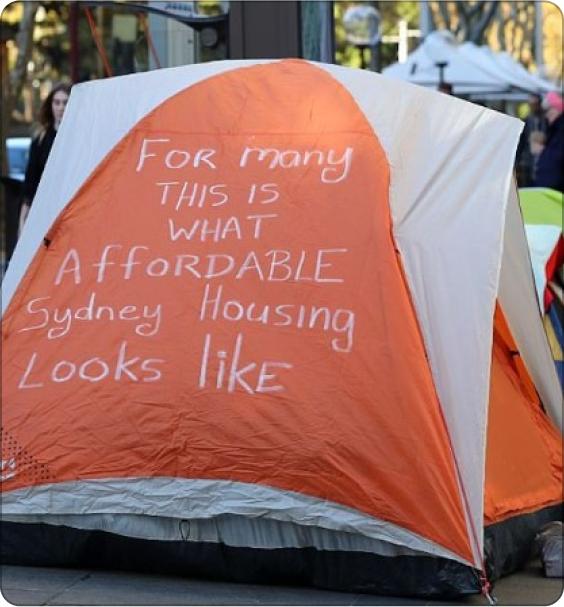 FOR many
THIS IS
WHAT
AFFORDABLE
Sydney Housing
Looks like